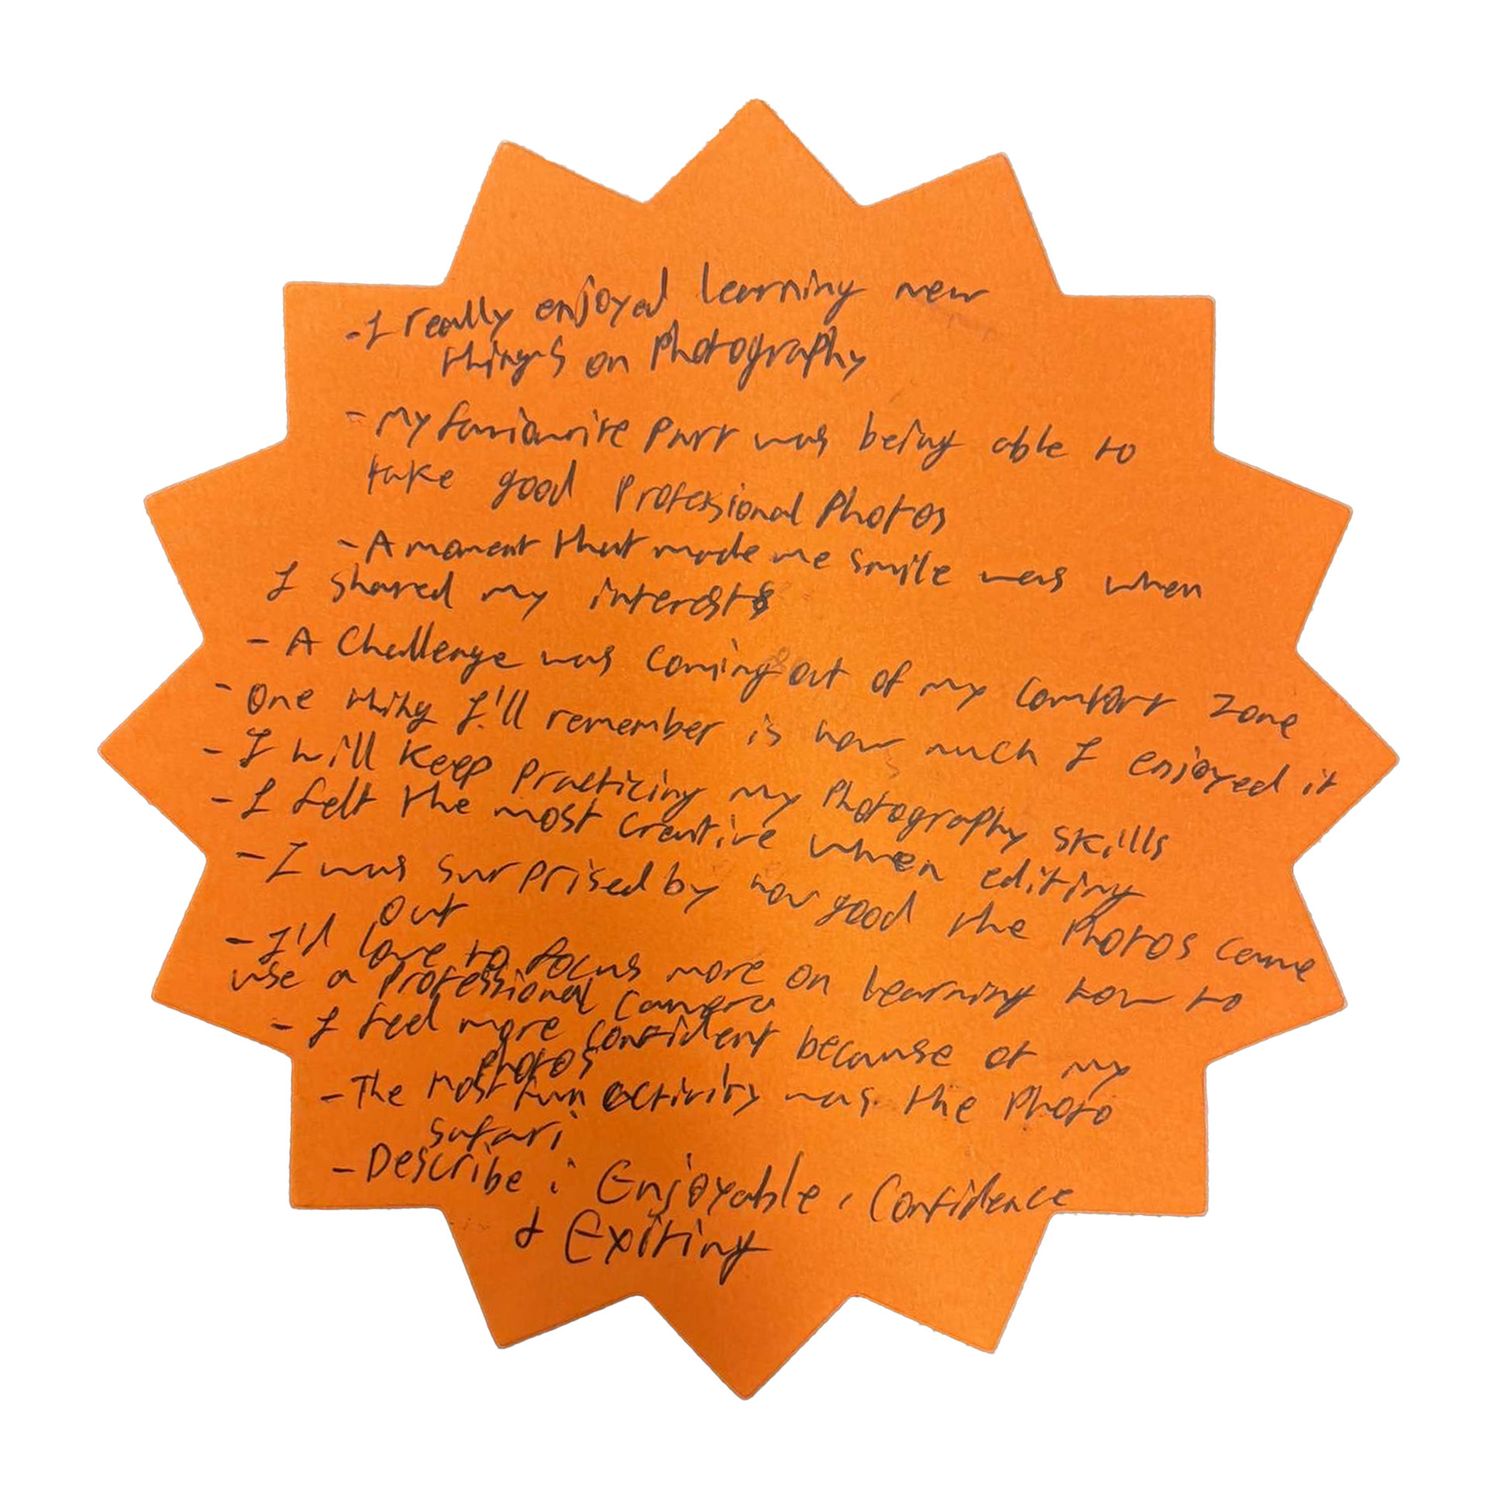 - I really enjoyed learning new
things on Photography
- My faviourite Part was being able to
take good Professional Photos
- A moment that made me smile was when
I shared my interests
- A Challenge was coming out of my comfort zone
- One thing I'll remember is how much I enjoyed it
- I will keep Practicing my Photography skills
- I felt the most creative when editing
- I was surprised by how good the Photos came
out
- I'd love to focus more on learning how to
use a Professional camera
- I feel more confident because of my
Photos
- The most fun activity was the Photo
safari
- Describe : Enjoyable, Confidence
& Exiting